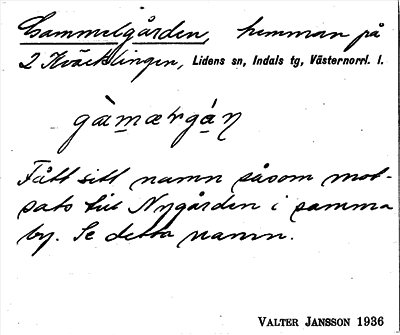 Gammelgården, hemman på
2 Kväcklingen, Lidens sn, Indals tg, Västernorrl. l.
gàmæṛgáṇ
Fått sitt namn såsom mot-
sats till Nygården i samma
by. Se detta namn.
VALTER JANSSON 1936